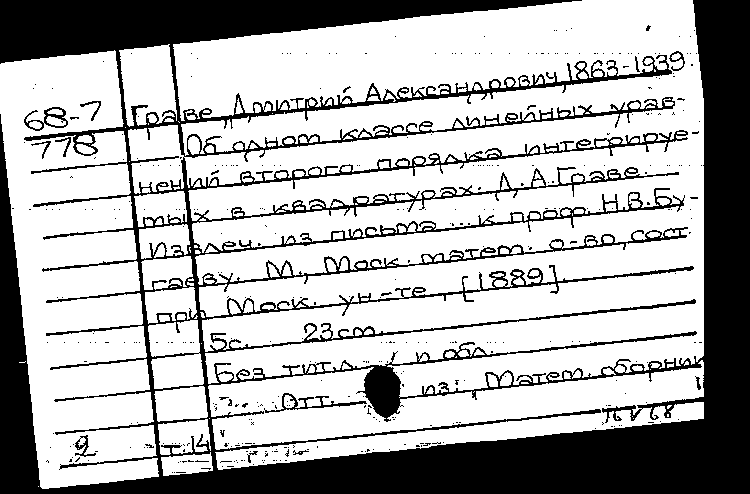 68-7 Граве, Дмитрий Александрович, 1863-1939
778 Об одном классе линейных урав-
нений второго порядка интегрируе-
мых в квадратурах. Д.А.Граве.
Извлеч. из письма ... к проф. Н.В.Бу-
гаеву. М., Моск. матем. о-во, сост.
при Моск. ун-те, [1889].
5с. 23cm.
Без тит.л. и обл.
Отт. из: Матем. сборник
16 V 68
2 т.14